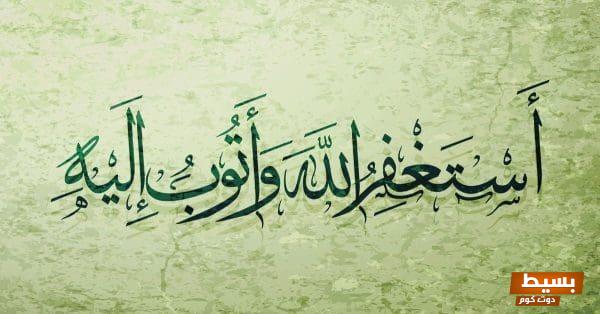 أَسْتَغْفِرُ اللَّهَ وَأَتُوبُ إِلَيْهِ
بسيط
دوت كوم